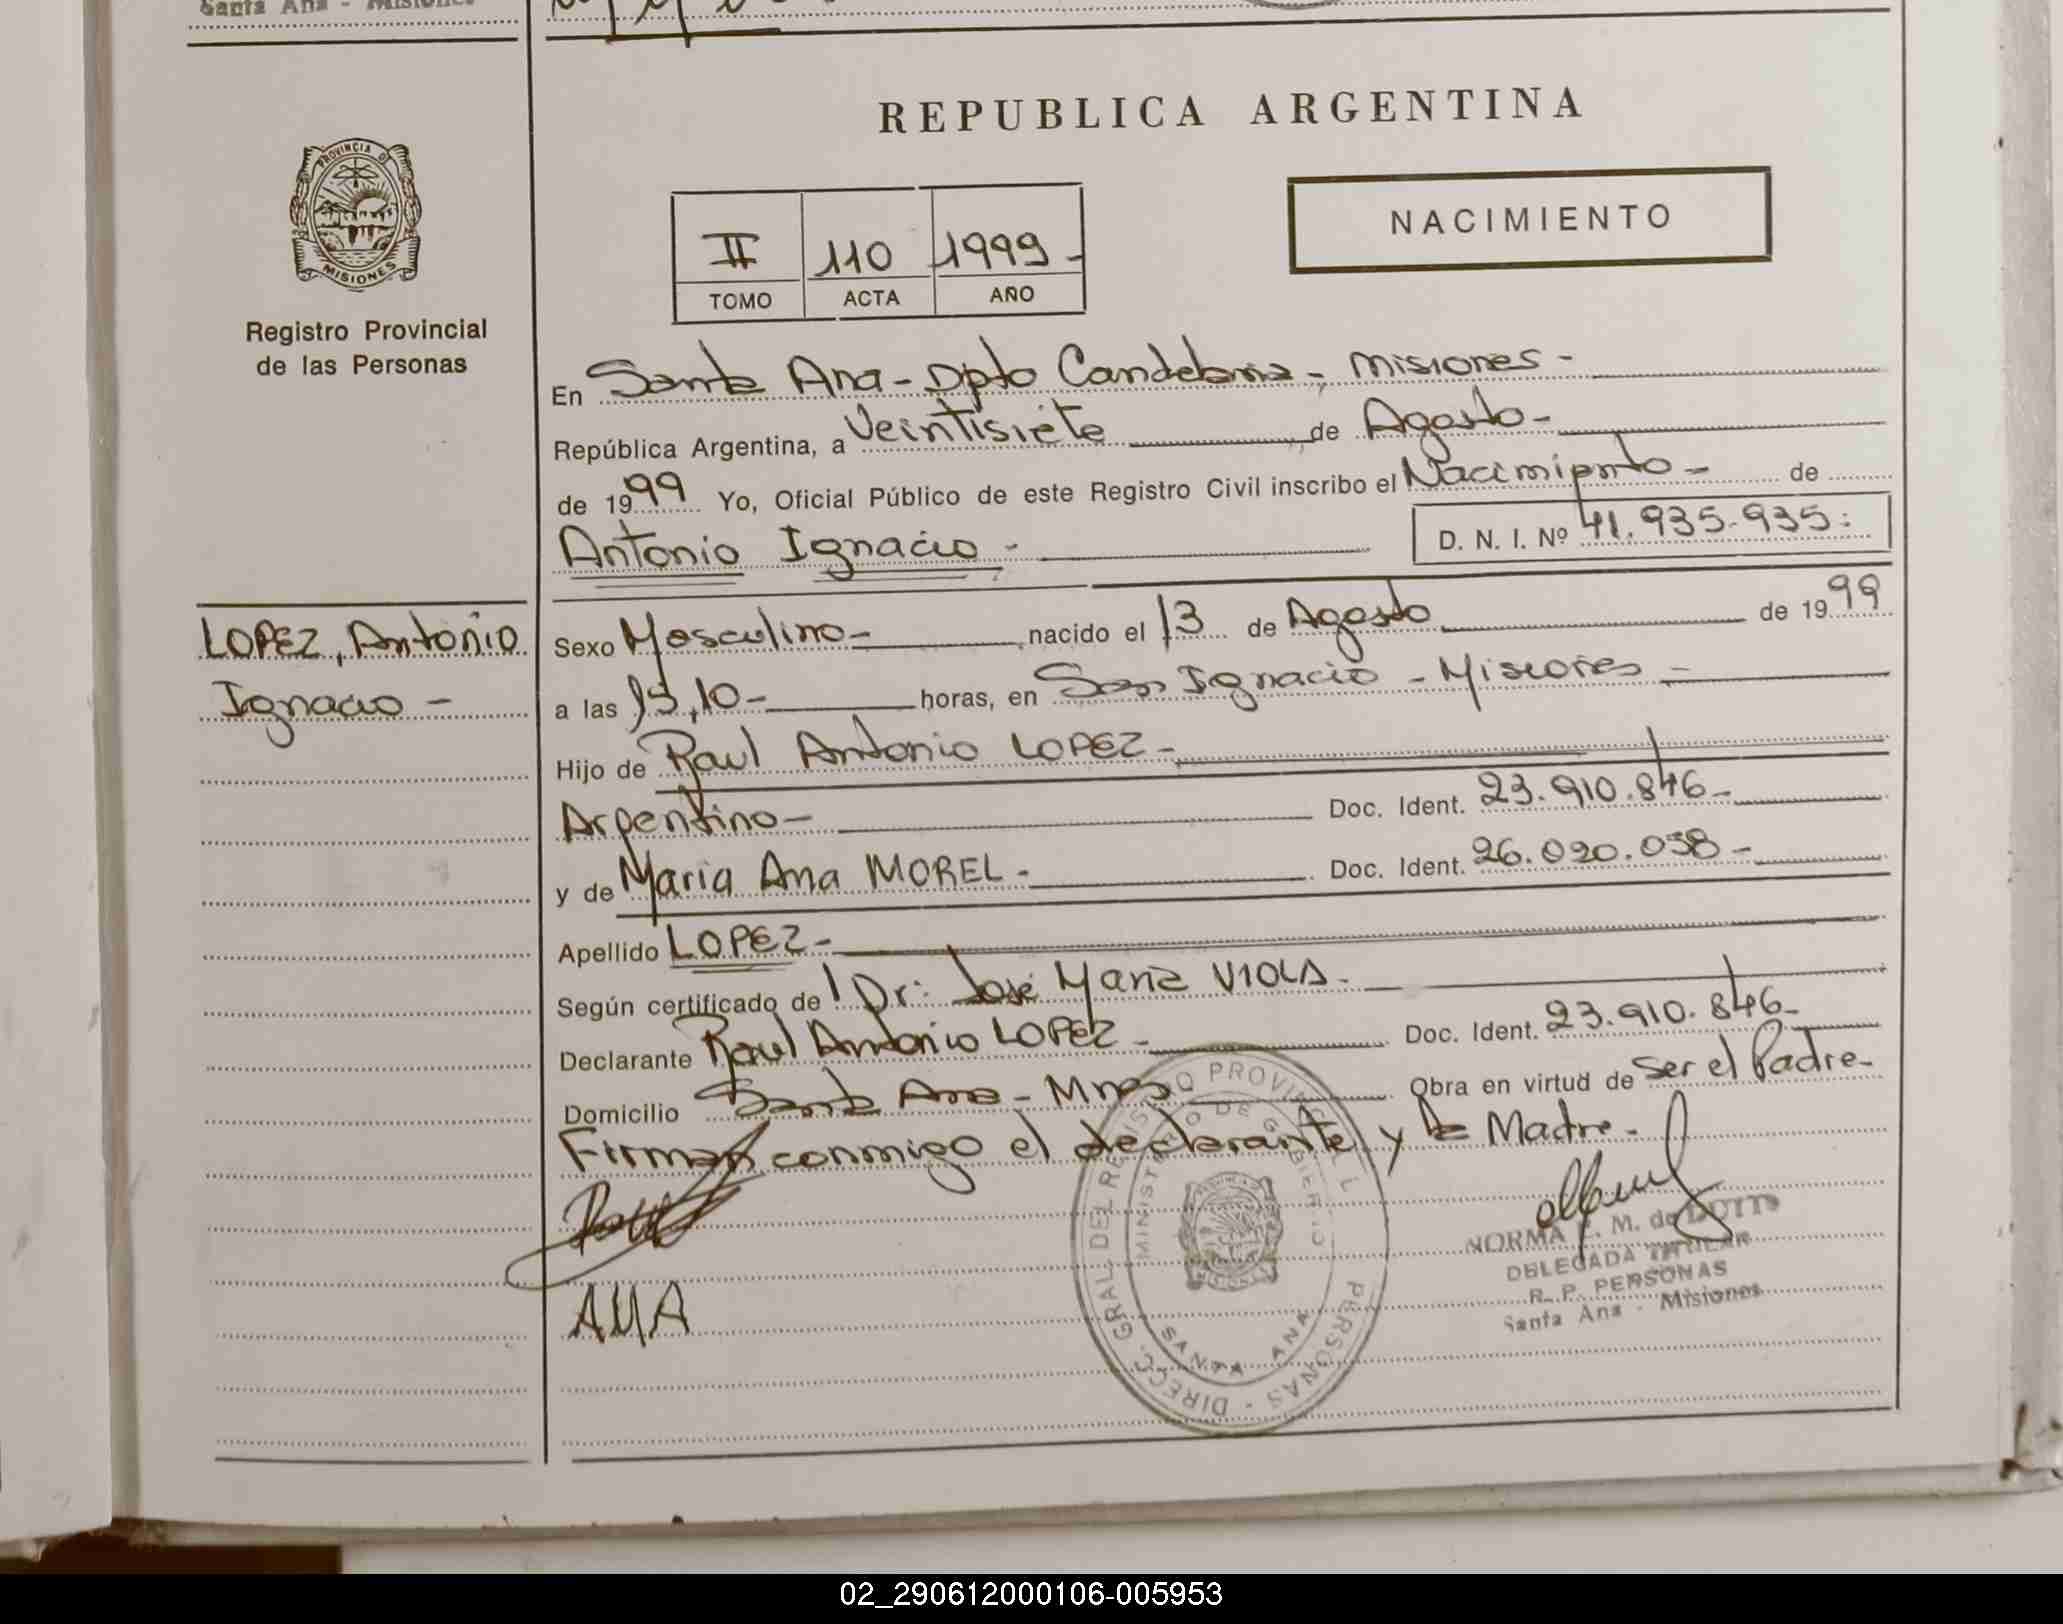 Santa Ana - Misiones
REPUBLICA ARGENTINA
PROVINCIA DE
MISIONES
Registro Provincial
de las Personas
II 110 1999-
TOMO ACTA AÑO
NACIMIENTO
En Santa Ana - Dpto Candelaria - Misiones -
República Argentina, a Veintisiete de Agosto -
de 1999 Yo, Oficial Público de este Registro Civil inscribo el Nacimiento - de
Antonio Ignacio - D. N. I. Nº 41.935.935:
LOPEZ, Antonio
Ignacio -
Sexo Masculino - nacido el 13 de Agosto de 1999
a las 15,10 - horas, en San Ignacio - Misiones -
Hijo de Raul Antonio LOPEZ -
Argentino - Doc. Ident. 23.910.846 -
y de Maria Ana MOREL - Doc. Ident. 26.020.038 -
Apellido LOPEZ -
Según certificado de Dr: José Maria VIOLA -
Declarante Raul Antonio LOPEZ - Doc. Ident. 23.910.846 -
Domicilio Santa Ana - Mnes Obra en virtud de ser el Padre -
Firman conmigo el declarante y la Madre -
AMA
DIRECC. GRAL. DEL REGISTRO PROVINCIAL PERSONAS
MINISTERIO DE GOBIERNO
MISIONES
SANTA ANA
NORMA M. de DOTTO
DELEGADA TITULAR
R. P. PERSONAS
Santa Ana - Misiones
02_290612000106-005953